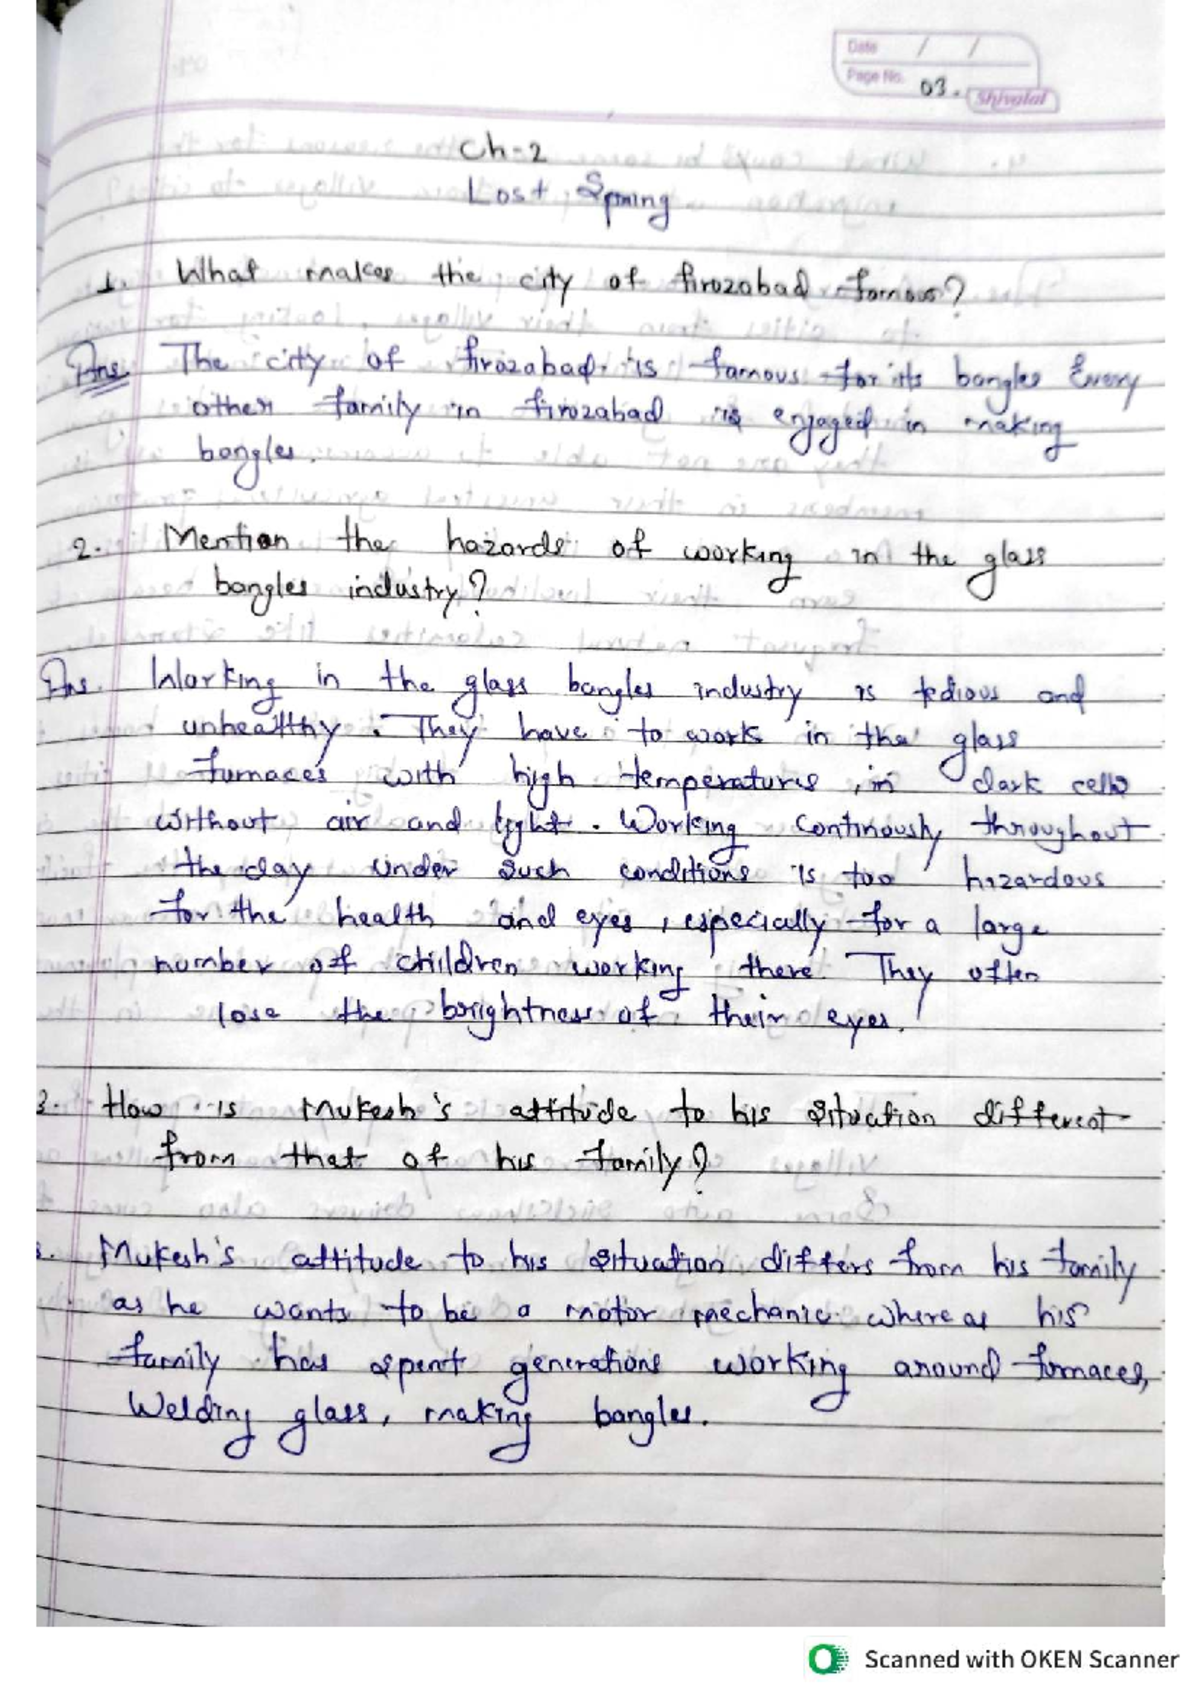 Date / /
Page No. 03.
Shivalal
Ch-2
Lost Spring
1. What makes the city of firozabad famous?
Ans The city of firozabad is famous for its bangles Every
other family in firozabad is engaged in making
bangles.
2. Mention the hazards of working in the glass
bangles industry?
Ans. Working in the glass bangles industry is tedious and
unhealthy. They have to work in the glass
furnaces with high temperatures, in dark cells
without air and light. Working continously throughout
the day under such conditions is too hazardous
for the health and eyes, especially for a large
number of children working there. They often
lose the brightness of their eyes.
3. How is Mukesh's attitude to his situation different
from that of his family?
Mukesh's attitude to his situation differs from his family
as he wants to be a motor mechanic. where as his
family has spent generations working around furnaces,
Welding glass, making bangles.
Scanned with OKEN Scanner